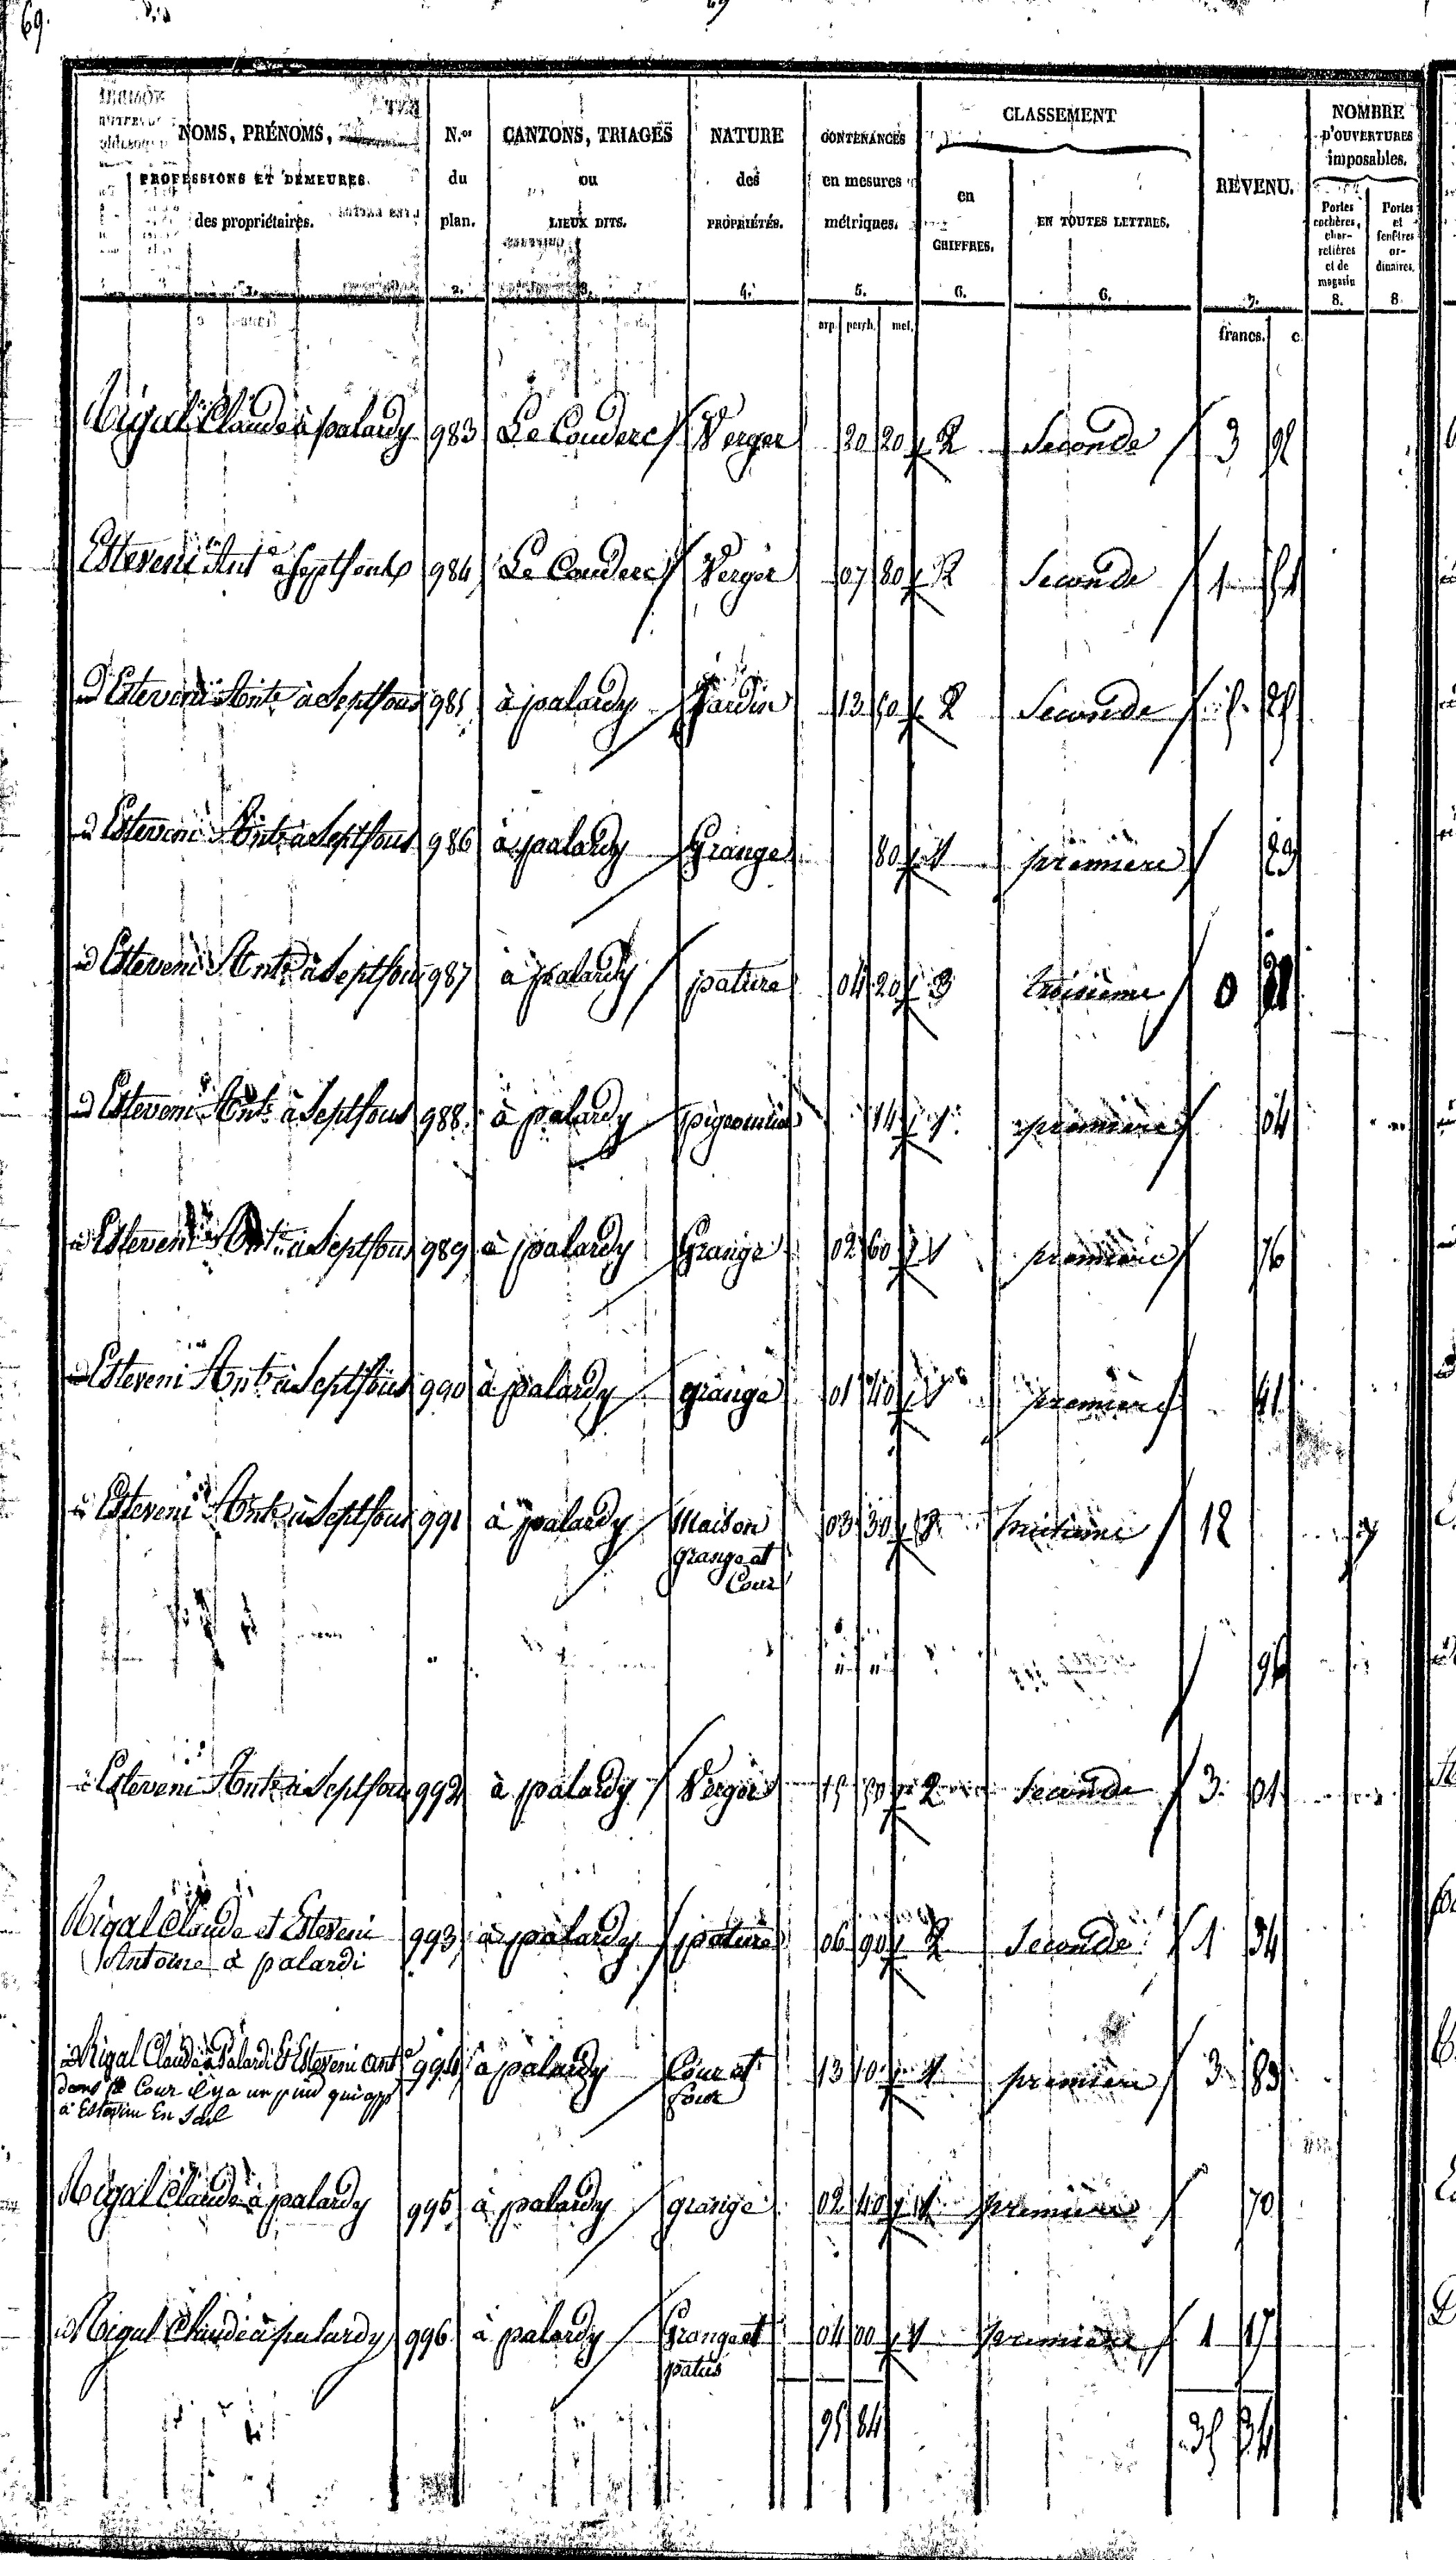 69.
NOMS, PRÉNOMS,
PROFESSIONS ET DEMEURES
des propriétaires.
1.
N.os
du
plan.
2.
CANTONS, TRIAGES
ou
LIEUX DITS.
3.
NATURE
des
PROPRIÉTÉS.
4.
CONTENANCES
en mesures
métriques.
5.
CLASSEMENT
en
CHIFFRES.
6.
EN TOUTES LETTRES.
6.
REVENU.
7.
NOMBRE
D'OUVERTURES
imposables.
Portes
cochères,
char-
retières
et de
magasin
8.
Portes
et
fenêtres
or-
dinaires.
8.
arp. perch. met.
francs. c.
Rigal Claude à palardy 983 Le Couderc Verger 20 20 2 Seconde 3
Esteveni Ant.e à Septfonds 984 Le Couderc Verger 07 80 2 Seconde 1
id Esteveni Ant.e à Septfons 985 à palardy Jardin 13 2 Seconde
id Esteveni Ant.e à Septfons 986 à palardy Grange 80 1 première 23
id Esteveni Ant.e à Septfons 987 à palardy pature 04 20 3 troisième 0
id Esteveni Ant.e à Septfons 988 à palardy pigeonnier 14 1 première 04
id Esteveni Ant.e à Septfons 989 à palardy Grange 02 60 1 première 76
id Esteveni Ant.e à Septfons 990 à palardy grange 01 40 1 première 41
id Esteveni Ant.e à Septfons 991 à palardy Maison 03 30 12
grange et
Cour
" " 96
id Esteveni Ant.e à Septfons 992 à palardy Verger 15 50 2 Seconde 3 01
Rigal Claude et Esteveni 993 à palardy pature 06 90 2 Seconde 1 34
Antoine à palardi
id Rigal Claude à Palardi et Esteveni Ant.e 994 à palardy Cour et 13 10 1 première 3 83
four
dans la Cour il y a un qui app
à Estevini En Seul
Rigal Claude à palardy 995 à palardy grange 02 40 1 première 70
id Rigal Claude à palardy 996 à palardy Grange et 04 00 1 première 1 17
patus
95 84 35 34